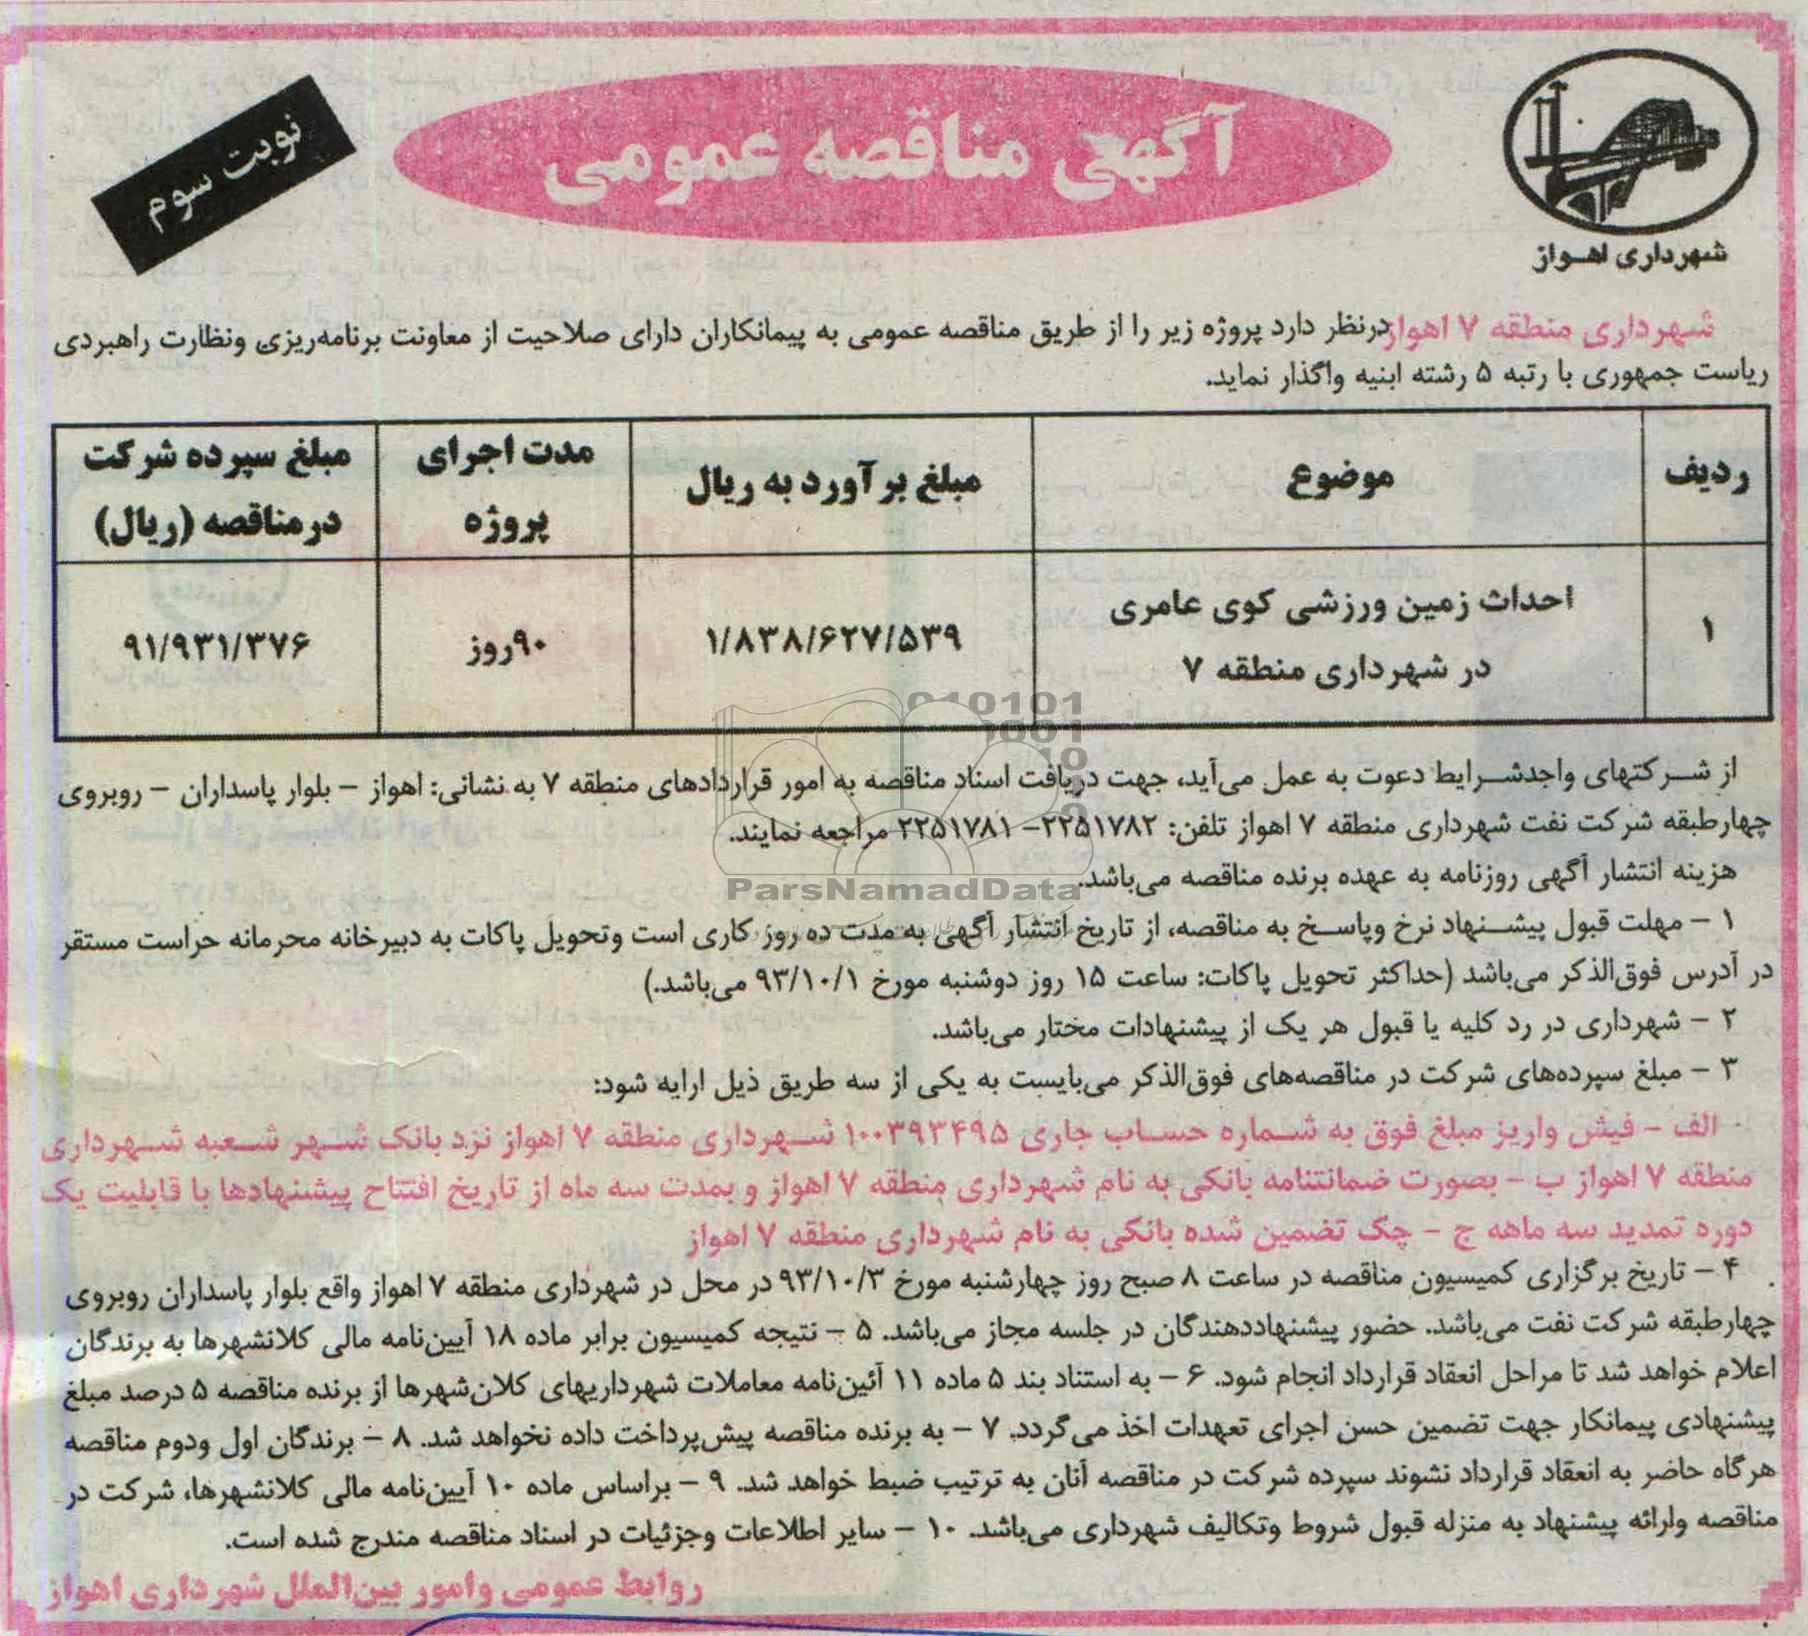 آگهی مناقصه عمومی
نوبت سوم
شهرداری اهواز
شهرداری منطقه ۷ اهواز درنظر دارد پروژه زیر را از طریق مناقصه عمومی به پیمانکاران دارای صلاحیت از معاونت برنامه‌ریزی ونظارت راهبردی
ریاست جمهوری با رتبه ۵ رشته ابنیه واگذار نماید.
ردیف | موضوع | مبلغ برآورد به ریال | مدت اجرای پروژه | مبلغ سپرده شرکت درمناقصه (ریال)
۱ | احداث زمین ورزشی کوی عامری در شهرداری منطقه ۷ | ۱/۸۳۸/۶۲۷/۵۳۹ | ۹۰روز | ۹۱/۹۳۱/۳۷۶
از شرکتهای واجدشرایط دعوت به عمل می‌آید، جهت دریافت اسناد مناقصه به امور قراردادهای منطقه ۷ به نشانی: اهواز – بلوار پاسداران – روبروی
چهارطبقه شرکت نفت شهرداری منطقه ۷ اهواز تلفن: ۲۲۵۱۷۸۲– ۲۲۵۱۷۸۱ مراجعه نمایند.
هزینه انتشار آگهی روزنامه به عهده برنده مناقصه می‌باشد.
۱ – مهلت قبول پیشنهاد نرخ وپاسخ به مناقصه، از تاریخ انتشار آگهی به مدت ده روز کاری است وتحویل پاکات به دبیرخانه محرمانه حراست مستقر
در آدرس فوق‌الذکر می‌باشد (حداکثر تحویل پاکات: ساعت ۱۵ روز دوشنبه مورخ ۹۳/۱۰/۱ می‌باشد.)
۲ – شهرداری در رد کلیه یا قبول هر یک از پیشنهادات مختار می‌باشد.
۳ – مبلغ سپرده‌های شرکت در مناقصه‌های فوق‌الذکر می‌بایست به یکی از سه طریق ذیل ارایه شود:
الف – فیش واریز مبلغ فوق به شماره حساب جاری ۱۰۰۳۹۳۴۹۵ شهرداری منطقه ۷ اهواز نزد بانک شهر شعبه شهرداری
منطقه ۷ اهواز ب – بصورت ضمانتنامه بانکی به نام شهرداری منطقه ۷ اهواز و بمدت سه ماه از تاریخ افتتاح پیشنهادها با قابلیت یک
دوره تمدید سه ماهه ج – چک تضمین شده بانکی به نام شهرداری منطقه ۷ اهواز
۴ – تاریخ برگزاری کمیسیون مناقصه در ساعت ۸ صبح روز چهارشنبه مورخ ۹۳/۱۰/۳ در محل در شهرداری منطقه ۷ اهواز واقع بلوار پاسداران روبروی
چهارطبقه شرکت نفت می‌باشد. حضور پیشنهاددهندگان در جلسه مجاز می‌باشد. ۵ – نتیجه کمیسیون برابر ماده ۱۸ آیین‌نامه مالی کلانشهرها به برندگان
اعلام خواهد شد تا مراحل انعقاد قرارداد انجام شود. ۶ – به استناد بند ۵ ماده ۱۱ آئین‌نامه معاملات شهرداریهای کلان‌شهرها از برنده مناقصه ۵ درصد مبلغ
پیشنهادی پیمانکار جهت تضمین حسن اجرای تعهدات اخذ می‌گردد. ۷ – به برنده مناقصه پیش‌پرداخت داده نخواهد شد. ۸ – برندگان اول ودوم مناقصه
هرگاه حاضر به انعقاد قرارداد نشوند سپرده شرکت در مناقصه آنان به ترتیب ضبط خواهد شد. ۹ – براساس ماده ۱۰ آیین‌نامه مالی کلانشهرها، شرکت در
مناقصه وارائه پیشنهاد به منزله قبول شروط وتکالیف شهرداری می‌باشد. ۱۰ – سایر اطلاعات وجزئیات در اسناد مناقصه مندرج شده است.
روابط عمومی وامور بین‌الملل شهرداری اهواز
ParsNamadData